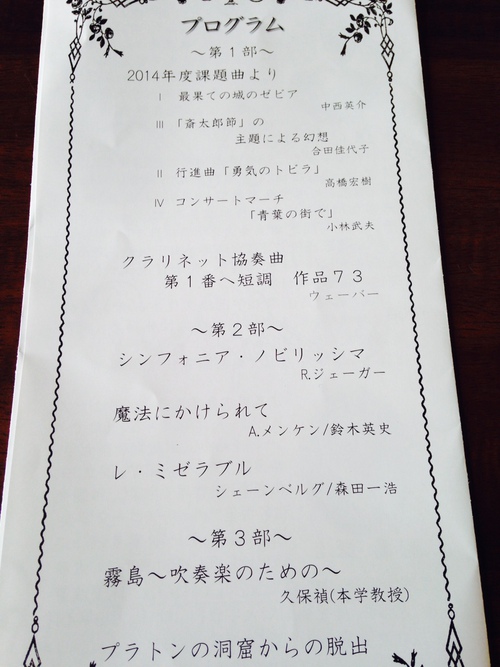 プログラム
～第１部～
2014年度課題曲より
Ⅰ 最果ての城のゼビア
中西英介
Ⅲ 「斎太郎節」の
主題による幻想
合田佳代子
Ⅱ 行進曲「勇気のトビラ」
高橋宏樹
Ⅳ コンサートマーチ
「青葉の街で」
小林武夫
クラリネット協奏曲
第１番ヘ短調 作品７３
ウェーバー
～第２部～
シンフォニア・ノビリッシマ
R.ジェーガー
魔法にかけられて
A.メンケン/鈴木英史
レ・ミゼラブル
シェーンベルグ/森田一浩
～第３部～
霧島～吹奏楽のための～
久保禎(本学教授)
プラトンの洞窟からの脱出